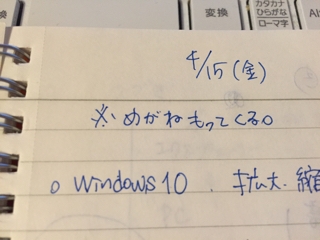 変換
カタカナ
ひらがな
ローマ字
Alt
4/15(金)
※めがねもってくる。
○ Windows10. 拡大.縮